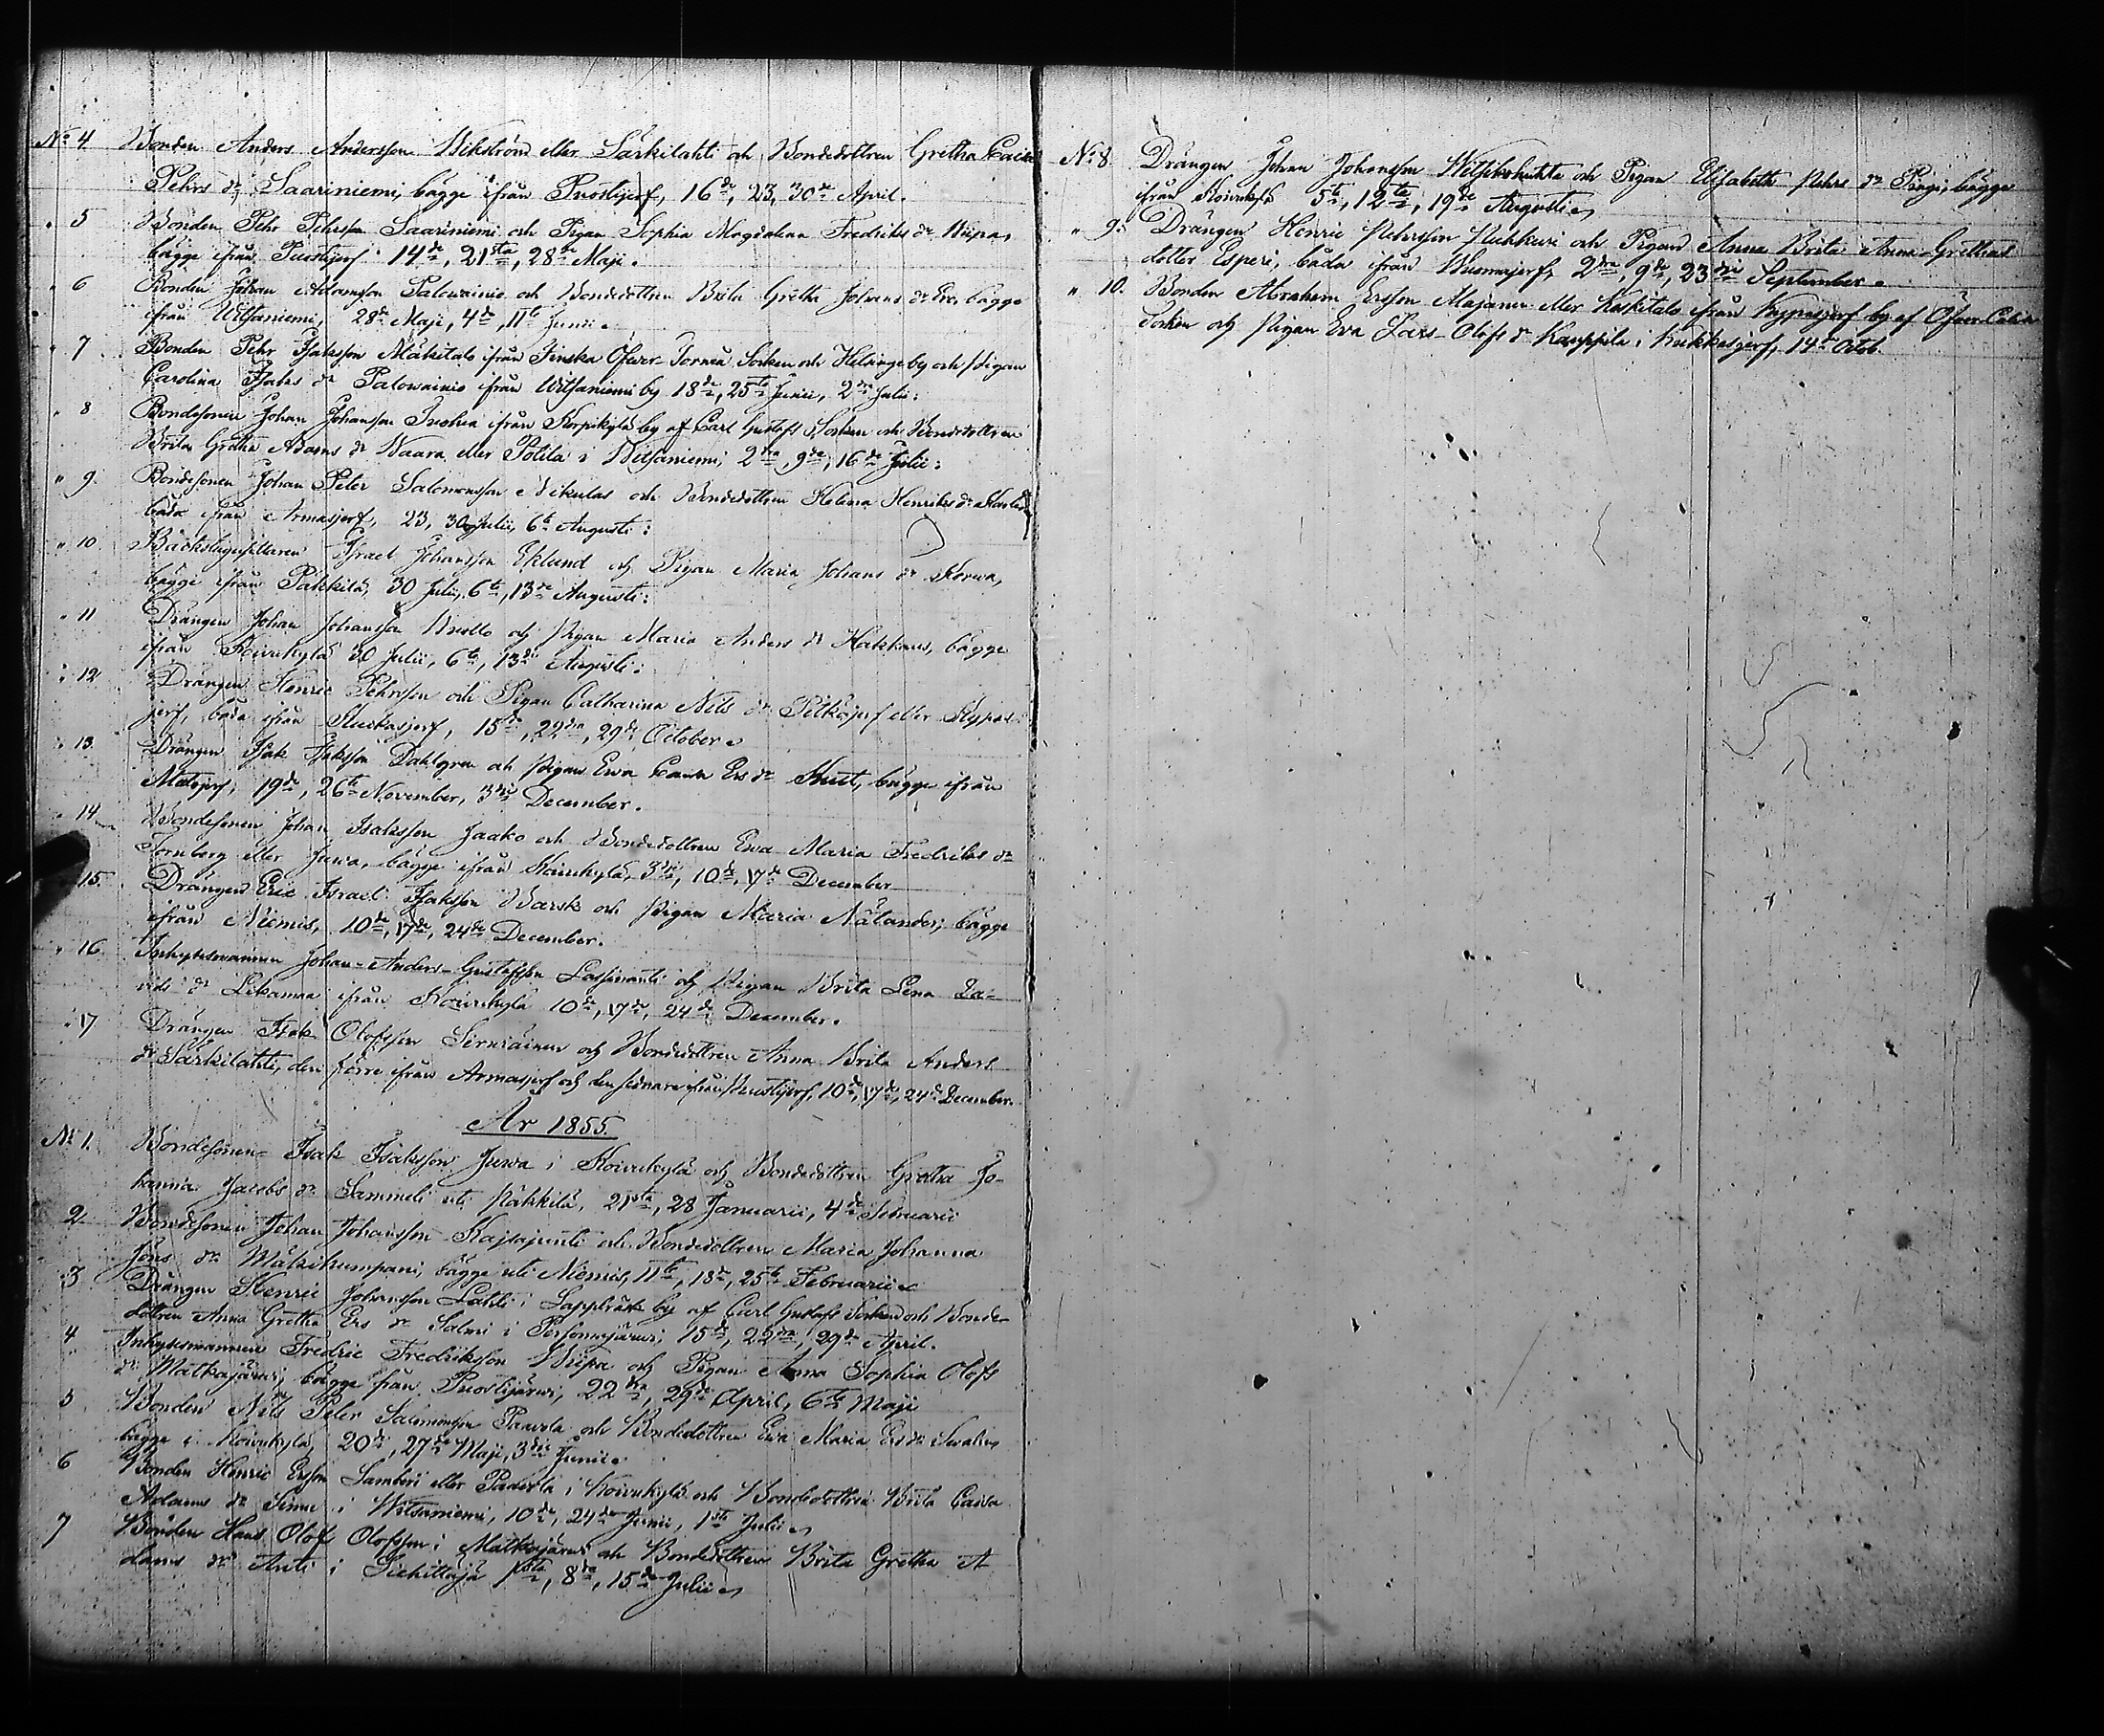 No 4 Bonden Anders Andersson Wikström eller Särkilahti och Bondedottren Gretha Caisa
Pehrs dr Saariniemi, bägge ifrån Puostijerf, 16de, 23, 30de April.
" 5 Bonden Pehr Pehrsson Saariniemi och Pigan Sophia Magdalena Fredriks dr Wiipa,
bägge ifrån Puostijerf 14de, 21sta, 28de Maji.
" 6 Bonden Johan Adamsson Palowainio och Bondedottren Brita Gretha Johans dr Ero bägge
från Witsaniemi, 28de Maji, 4de, 11te Junii.
" 7 Bonden Pehr Isaksson Mäkitalo ifrån Finska Öfwer Torneå Socken och Helsinge by och Pigan
Carolina Isaks dr Palowainio ifrån Witsaniemi by 18de, 25te Junii, 2dra Julii.
" 8 Bondesonen Johan Johansson ifrån Korpikylä by af Carl Gustafs Socken och Bondedottren
Brita Gretha Adams dr Waara eller Potila i Witsaniemi, 2dra, 9de, 16de Julii.
" 9. Bondesonen Johan Peter Salomonsson Nikulas och Bondedottren Helena Henriks dr
båda ifrån Armasjerf, 23, 30 Julii, 6te Augusti.
" 10 Backstugusittaren Israel Johansson Eklund och Pigan Maria Johans dr Korwa,
bägge ifrån Päkkilä, 30 Julii, 6te, 13de Augusti.
" 11 Drängen Johan Johansson och Pigan Maria Anders dr bägge
ifrån Koivukylä 30 Julii, 6te, 13de Augusti.
" 12 Drängen Henric Pehrsson och Pigan Catharina Nils dr Pitkäjerf eller Kypas-
jerf, båda ifrån Kuckasjerf, 15de, 22dra, 29de October.
" 13. Drängen Isak Isaksson Dahlgren och Pigan Ewa Caisa Ers dr bägge ifrån
Matojerf, 19de, 26te November, 3dje December.
" 14 Bondesonen Johan Isaksson Jaako och Bondedottren Ewa Maria Fredriks dr
Tornberg eller Juwa, bägge ifrån Koivukylä, 3dje, 10de, 17de December
" 15. Drängen Eric Israel Isaksson Barsk och Pigan Maria Nälander, bägge
ifrån Niemis, 10de, 17de, 24de December.
" 16. Inhysesmannen Johan-Anders-Gustafsson Lassinanti och Pigan Brita Lena Da-
vids dr Likamaa ifrån Koivukylä 10de, 17de, 24de December.
" 17 Drängen Isak Olofsson och Bondedottren Anna Brita Anders
dr Särkilahti, den förre ifrån Armasjerf och den sednare ifrån Puostijerf, 10de, 17de, 24de December.
År 1855.
No 1. Bondesonen Isak Isaksson Juwa i Koivukylä och Bondedottren Gretha Jo-
hanna Jacobs dr Sammeli uti Päkkilä, 21sta, 28 Januarii, 4de Februarii
2 Bondesonen Johan Johansson Kajsajunti och Bondedottren Maria Johanna
Jöns dr Mäkikumpani, bägge uti Niemis, 11te, 18de, 25te Februarii
3 Drängen Henric Johansson Lahti i Lappträsk by af Carl Gustafs Socken och Bonde-
dottren Anna Gretha Ers dr Salmi i Persomajärwi, 15de, 22dra, 29de April.
4 Inhysesmannen Fredric Fredriksson Wiipa och Pigan Anna Sophia Olofs
dr Matkajärwi, bägge från Puostijärwi, 22dra, 29de April, 6te Maji
5 Bonden Nils Peter Salomonsson Paavola och Bondedottren Ewa Maria Ers dr
bägge i Koivukylä, 20de, 27de Maji, 3dje Junii.
6 Bonden Henric Ersson Lamberi eller Paavola i Koivukylä och Bondedottren Brita Caisa
Adams dr Simu i Witsaniemi, 10de, 24de Junii, 1sta Julii
7 Bonden Hans Olof Olofsson i Matkajärwi och Bondedottren Brita Gretha A-
dams dr Anti i Liehittäjä 1sta, 8de, 15de Julii
No 8. Drängen Johan Johansson och Pigan Elisabeth Pehrs dr bägge
ifrån Koivukylä 5te, 12te, 19de Augusti
" 9. Drängen Henric Pehrsson och Pigan Anna Brita Anna-Grethas
dotter Esperi, båda ifrån Wuomajerf, 2dra, 9de, 23dje September.
" 10. Bonden Abraham Ersson Majanen eller Koskitalo ifrån Kypasjerf by af Öfwer Calix
Socken och Pigan Eva Lars-Olofs dr Kauppila i Kukkasjerf, 14de Octob.